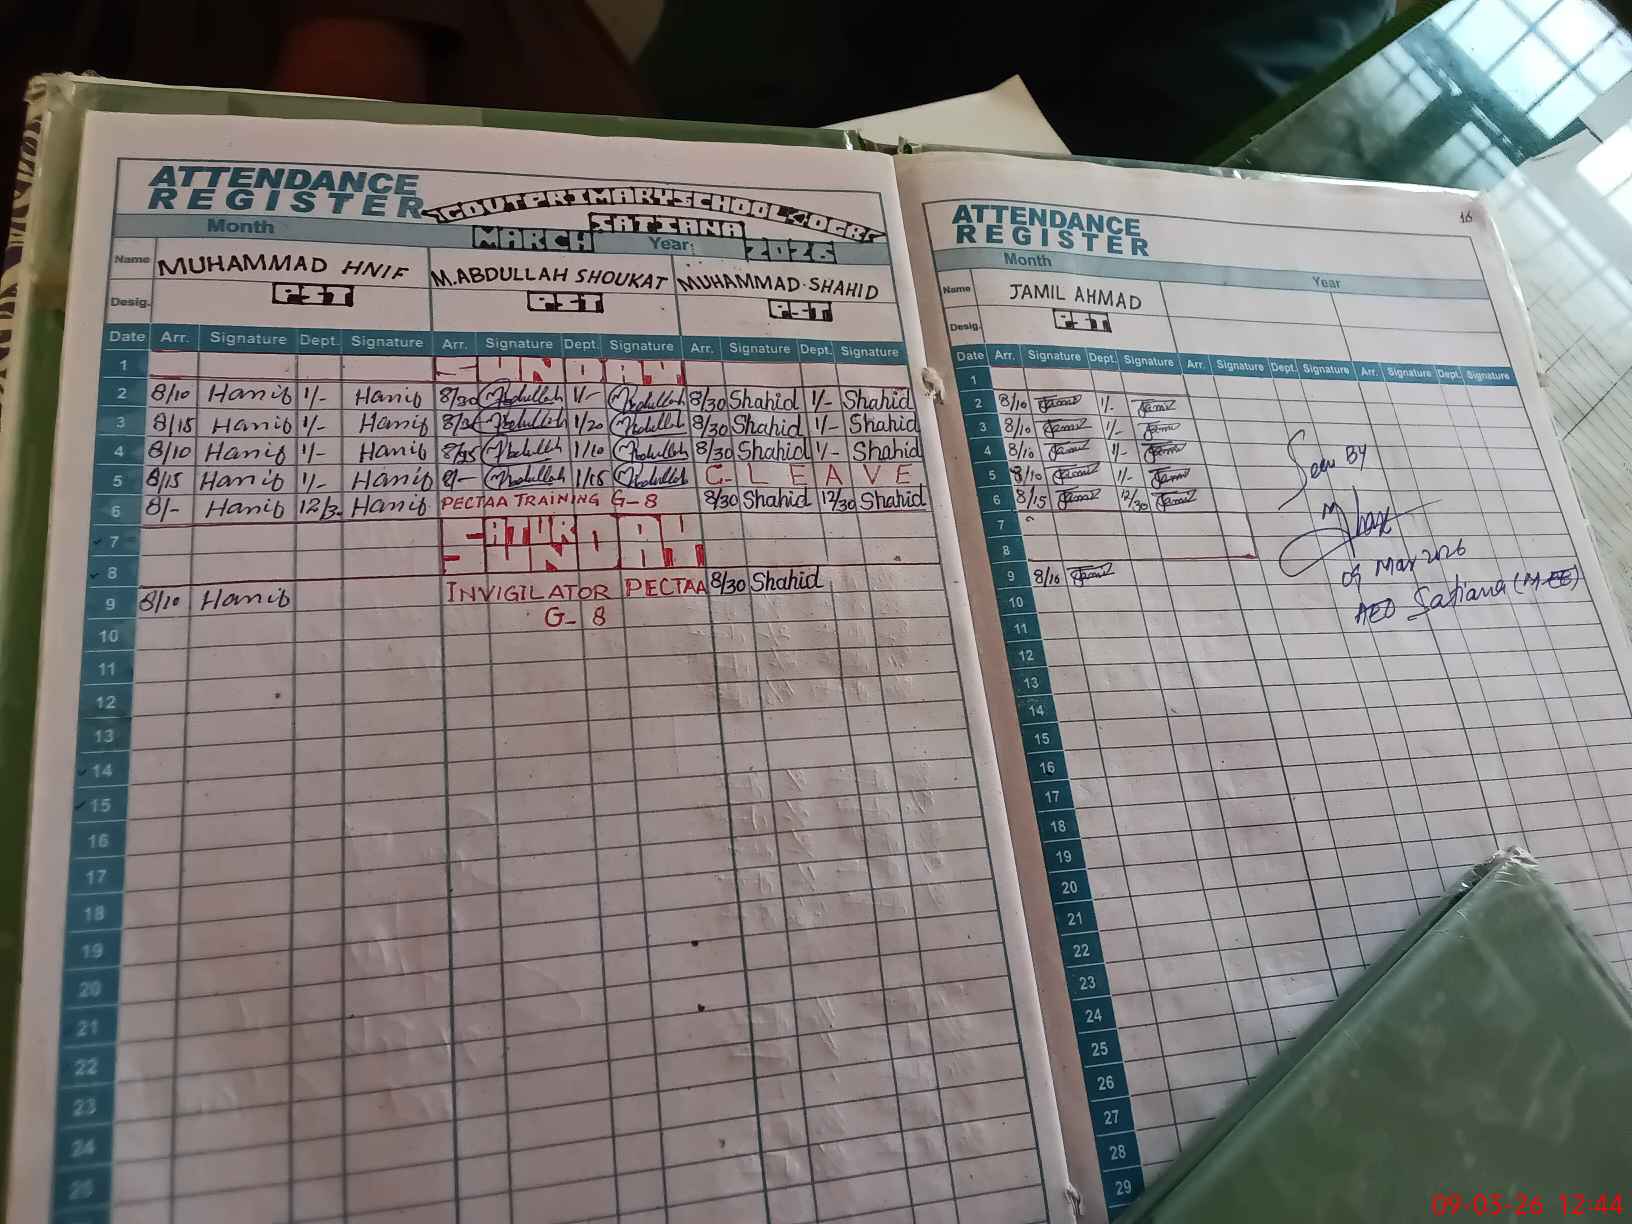 ATTENDANCE
REGISTER
GOVT PRIMARY SCHOOL
SATIANA
Month MARCH Year: 2026
Name MUHAMMAD HNIF M.ABDULLAH SHOUKAT MUHAMMAD SHAHID
Desig. PST PST PST
Date Arr. Signature Dept. Signature Arr. Signature Dept. Signature Arr. Signature Dept. Signature
1 SUNDAY
2 8/10 Hanif 1/- Hanif 8/30 Abdullah 1/- Abdullah 8/30 Shahid 1/- Shahid
3 8/15 Hanif 1/- Hanif Abdullah 1/20 Abdullah 8/30 Shahid 1/- Shahid
4 8/10 Hanif 1/- Hanif 8/35 Abdullah 1/10 Abdullah 8/30 Shahid 1/- Shahid
5 8/15 Hanif 1/- Hanif 8/- Abdullah 1/15 Abdullah C- LEAVE
6 8/- Hanif 12/30 Hanif PECTAA TRAINING G-8 8/30 Shahid 12/30 Shahid
7 SATURDAY
8 SUNDAY
9 8/10 Hanif INVIGILATOR PECTAA 8/30 Shahid
G-8
10
11
12
13
14
15
16
17
18
19
20
21
22
23
24
25
16
ATTENDANCE
REGISTER
Month Year
Name JAMIL AHMAD
Desig. PST
Date Arr. Signature Dept. Signature Arr. Signature Dept. Signature Arr. Signature Dept. Signature
1
2 8/10 Jamil 1/- Jamil
3 8/10 Jamil 1/- Jamil
4 8/10 Jamil 1/- Jamil
5 8/10 Jamil 1/- Jamil
6 8/15 Jamil 12/30 Jamil
7
8
9 8/10 Jamil
10
11
12
13
14
15
16
17
18
19
20
21
22
23
24
25
26
27
28
29
Seen By
09 Mar 2026
AEO Satiana (M-EE)
09-03-26 12:44